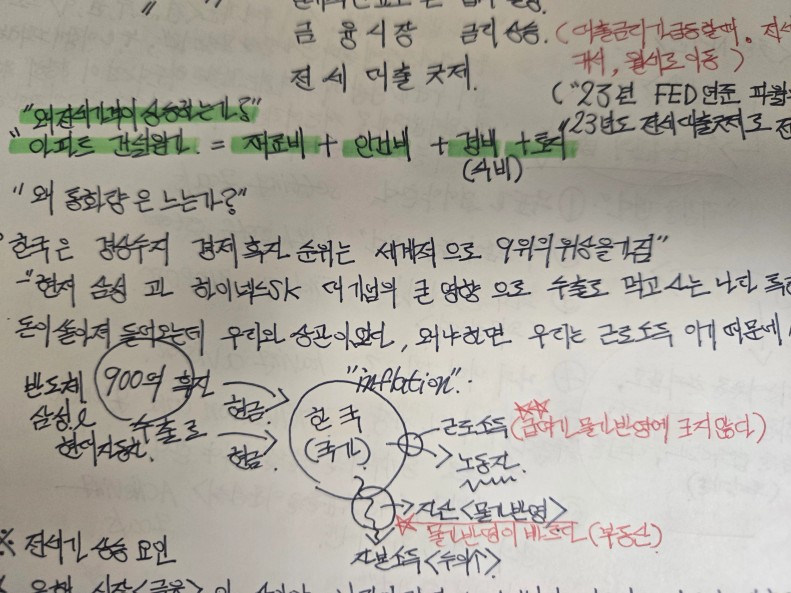 금융시장 금리상승. (대출금리가 급등할때. 전세
대신, 월세로 이동)
전세 대출 규제.
("23년 FED 연준
"23년도 전세대출규제로 전
"왜 전세가격이 상승하는가?"
"아파트 건설원가. = 재료비 + 인건비 + 경비 + 토지
(수비)
"왜 통화량은 느는가?"
"한국은 경상수지 경제 흑자 순위는 세계적으로 9위의 위상을 가짐"
-"현재 삼성 과 하이닉스SK 대기업의 큰 영향 으로 수출로 먹고 사는 나라
돈이 쏟아져 들어오는데 우리와 상관이없다, 왜냐하면 우리는 근로소득 이기 때문에
"inflation".
반도체 900억 흑자
삼성, 수출로
현대자동차.
현금.
현금.
한국
(국가)
근로소득 (급여가 물가반영에 크지않다)
노동자.
자산 <물가반영>
물가반영이 빠르다 (부동산)
자본소득 <수익↑>
※ 전세가 상승 요인
시장<금융>